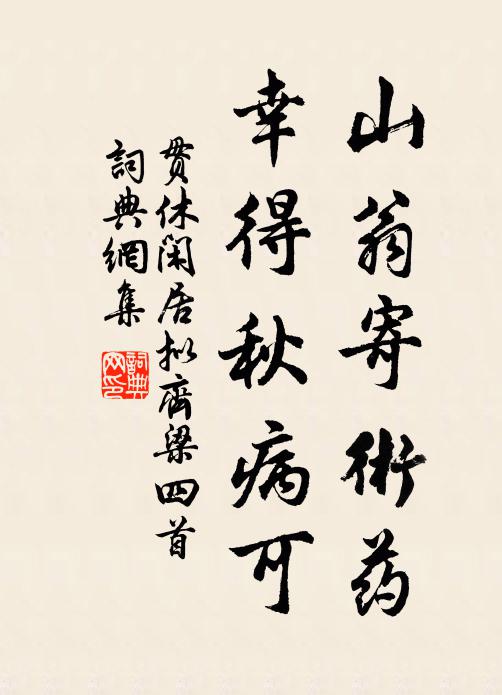 山翁寄術药
幸得秋病可
贯休闲居拟齊梁四首
詞典網集
詞典网印